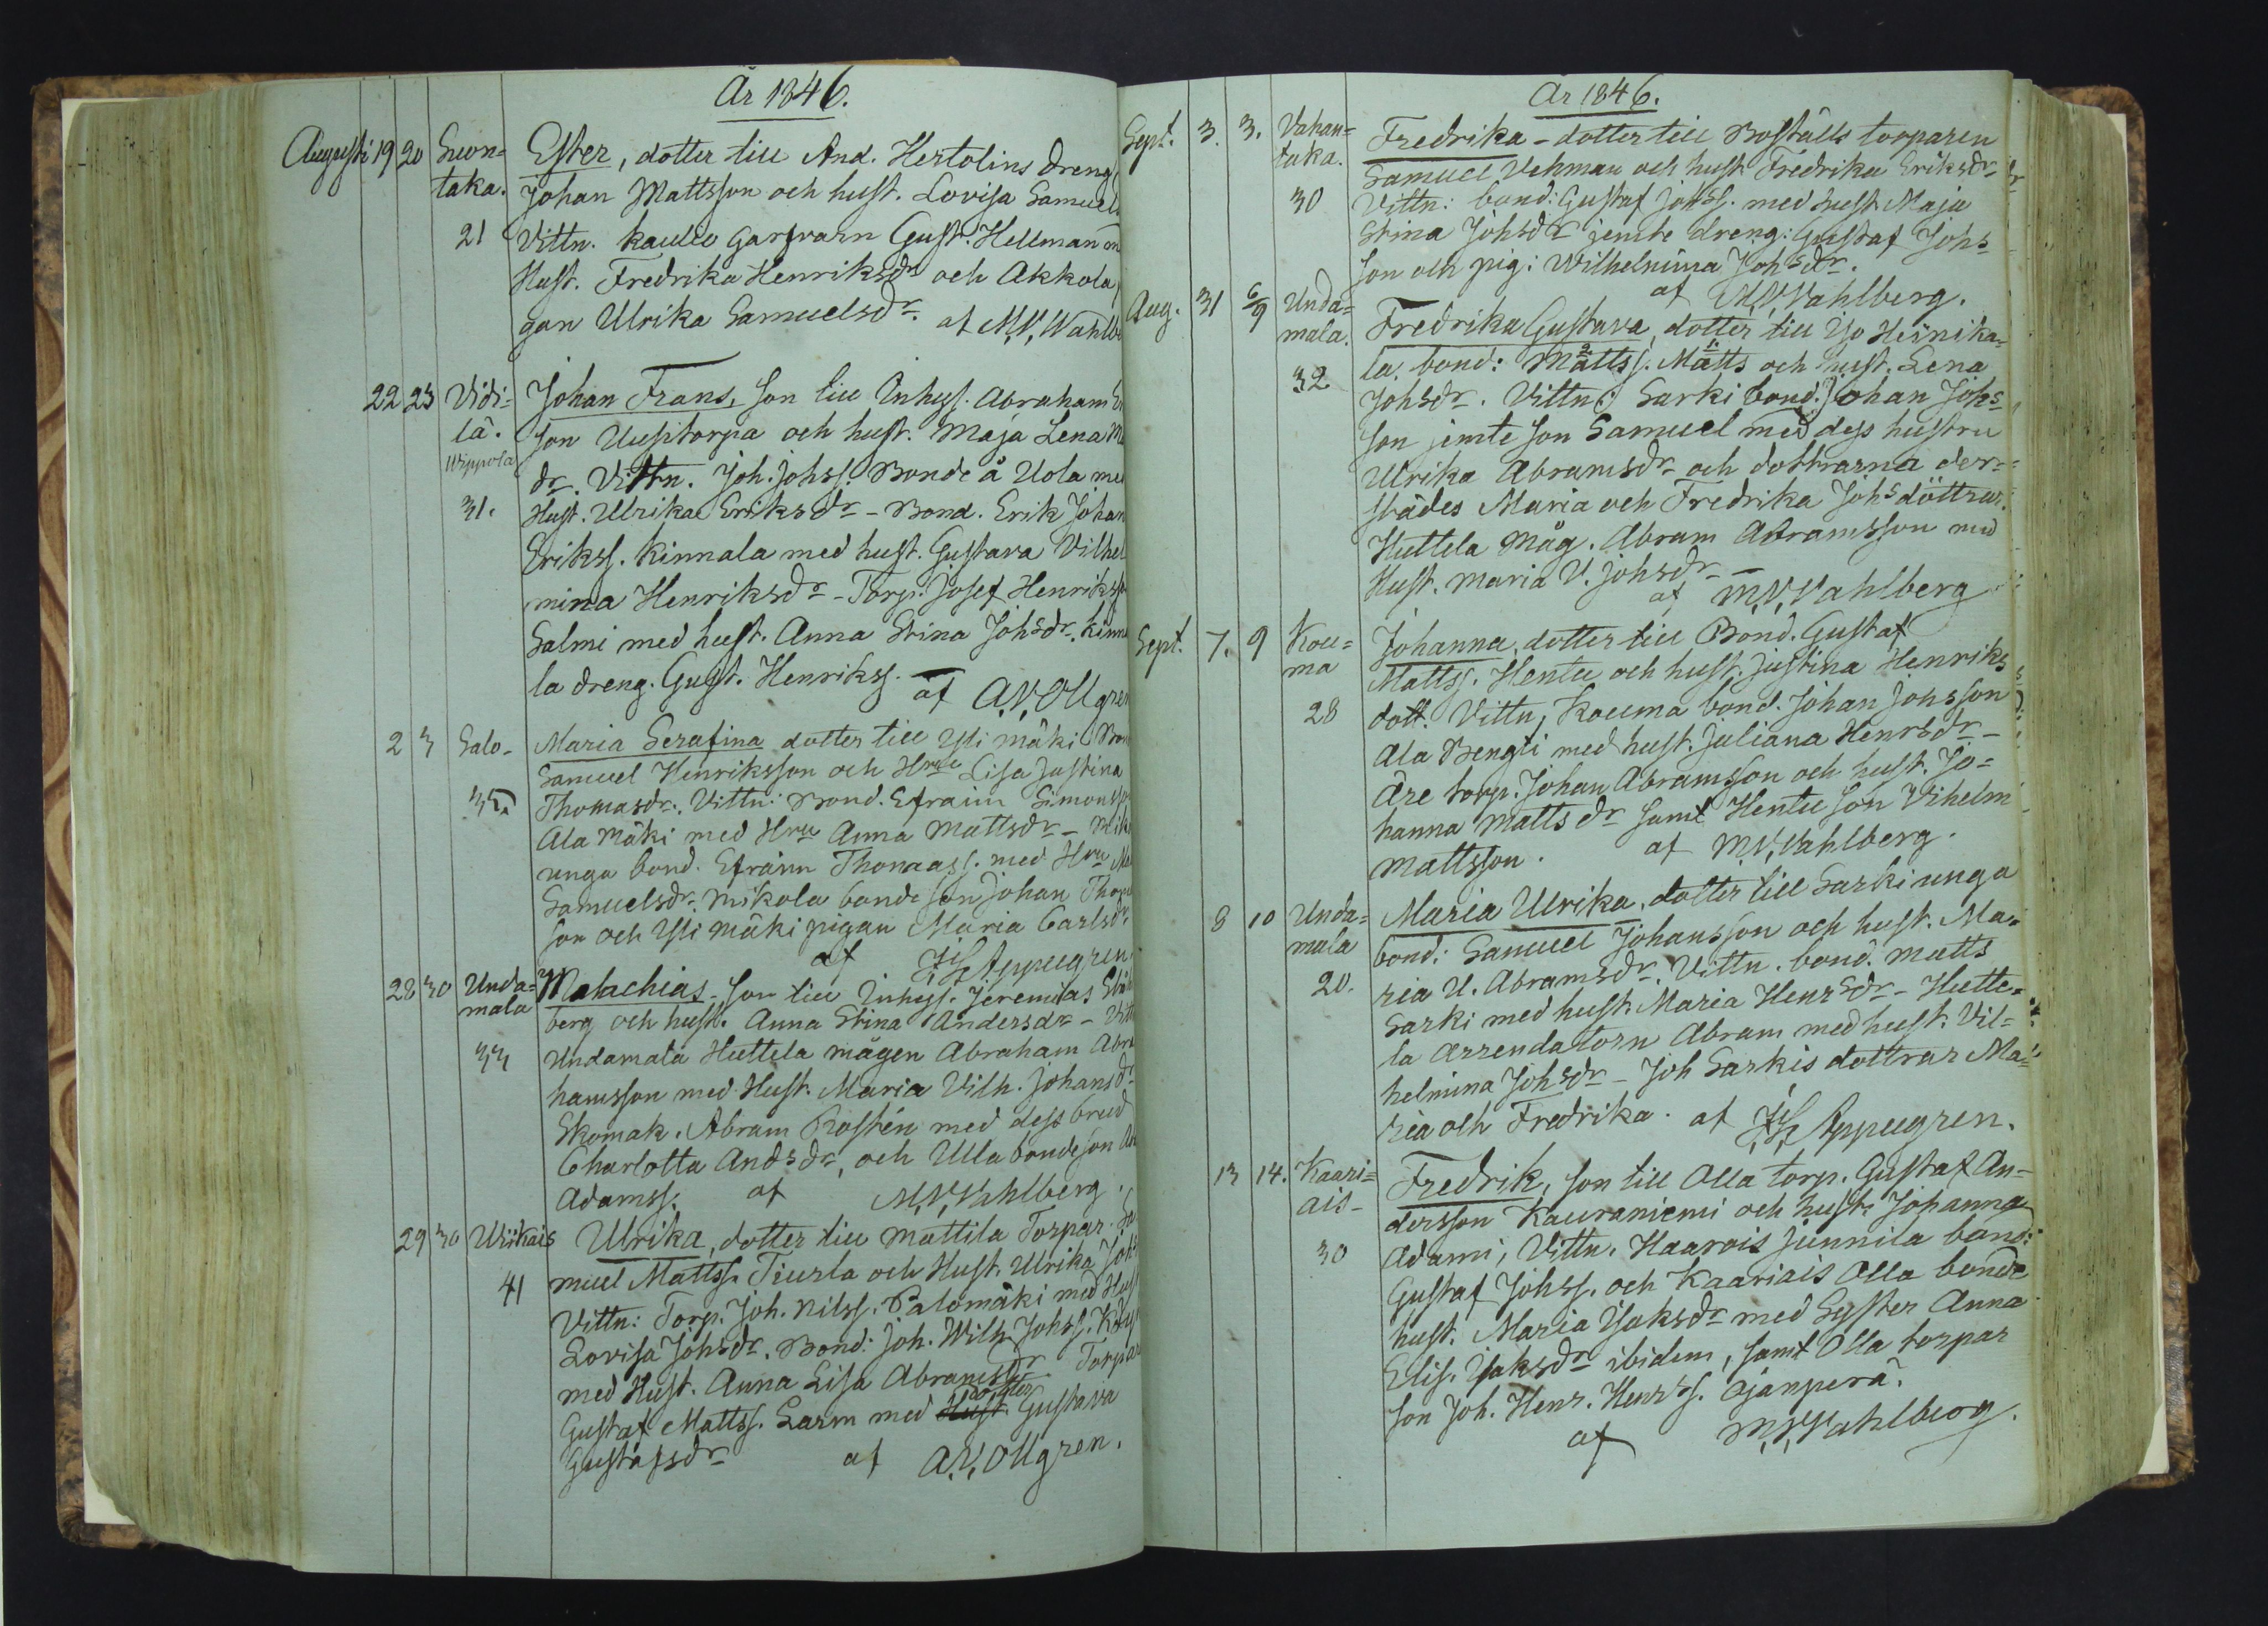 År 1846.
Augusti 19 20 Suon= Ester, dotter till And. Hertolins dreng
taka. Johan Mattsson och hust. Lovisa Samuels
21 Vittn. Kaulio Garfvarn Gust. Hellman m
Hust. Fredrika Henriksdr och Akkola
gan Ulrika Samuelsdr. af M.V. Wahlb
22 23 Vidi= Johan Frans, son till Inhys. Abraham
lä. son Uusitorpa och hust. Maja Lena
Wippola
dr. Vittn. Joh. Johss. Bonde å Uola me
31. Hust. Ulrika Eriksdr - Bond. Erik Johan
Erikss. Kinnala med hust. Gustava Vilhel
mina Henriksdr - Torp. Josef Henrikss
Salmi med hust. Anna Stina Johsdr. Kinna
la dreng. Gust. Henrikss. af A.V. Ollgren
2 3 Salo- Maria Serafina dotter till Yli Mäki Bon
Samuel Henriksson och Hru Lisa Justina
35. Thomasdr. Vittn: Bond. Efraim Simonss
Ala Mäki med Hru Anna Mattsdr - Mik
unga bond. Efraim Thomass. med Hru Ma
Samuelsdr. Mikola bonde son Johan Thom
son och Yli Mäki pigan Maria Carlsdr.
af Appelgren
28 30 Unda= Malachias, son till Inhys. Jeremias
mala berg och hust. Anna Stina Andersdr - Vitt
33 Undamala Huttela mågen Abraham Abra
hamsson med Hust. Maria Vilh. Johansdr
Skomak. Abram Rostén med dess brud
Charlotta Andsdr, och Ulla bondeson
Adamss. af M.V. Vahlberg.
29 30 Wiikais Ulrika, dotter till Mattila Torpar. Sa
41 muel Mattss. Tiurla och Hust. Ulrika Joh
Vittn: Torp. Joh. Nilss. Palomäki med Hust
Lovisa Johsdr. Bond: Joh. Wilh. Johss.
med Hust. Anna Lisa Abramsdr Torpar
dotter
Gustaf Mattss. Larm med Hust. Gustava
Gustafsdr af A.V. Ollgren.
År 1846.
Sept. 3. 3. Vahan= Fredrika - dotter till Boställs torparen
taka. Samuel Vehman och hust Fredrika Eriksdr
30 Vittn: bond: Gustaf Johss. med hust Maja
Stina Johsdr jemte dreng: Gustaf Johs
son och pig: Wilhelmina Johsdr.
af M.V. Vahlberg.
Aug. 31 6/9 Unda= Fredrika Gustava, dotter till Iso Heinika=
mala. la. bond: Mattss. Matts och hust. Lena
32 Johsdr. Vittn: Sarki bond: Johan Johs
son jemte son Samuel med dess hustru
Ulrika Abramsdr och dottrarna der=
städes Maria och Fredrika Johs döttrar.
Huttela måg. Abram Abramsson med
Hust. Maria V. Johsdr -
af M.V. Vahlberg
Sept. 7. 9 Kou= Johanna, dotter till Bond. Gustaf
ma Mattss. Hentu och hust. Justina Henriks
28 dott. Vittn, Kouma bond. Johan Johsson
Ala Bengti med hust. Juliana Henrsdr -
Äre torp. Johan Abramsson och hust. Jo=
hanna Mattsdr samt Hentu son Vihelm
Mattsson. af M.V. Vahlberg.
8 10 Unda= Maria Ulrika, dotter till Sarki unga
mala bond: Samuel Johansson och hust. Ma=
20. ria U. Abramsdr. Vittn. bond. Matts
Sarki med hust. Maria Henrsdr - Hutte=
la Arrendatorn Abram med hust. Vil=
helmina Johsdr - Joh Sarkis dottrar Ma=
ria och Fredrika. af Appelgren.
13 14. Kaari= Fredrik, son till Olla torp. Gustaf An-
ais- dersson Kauraniemi och hust. Johanna
30 Adami, Vittn. Haarois Junnila bond:
Gustaf Johss. och Kaariais Olla bonde
hust. Maria Isaksdr med Syster Anna
Elis. Isaksdr ibidem, samt Olla torpar
son Joh. Henr. Henrss. Ojanperä.
af M.V. Vahlberg.